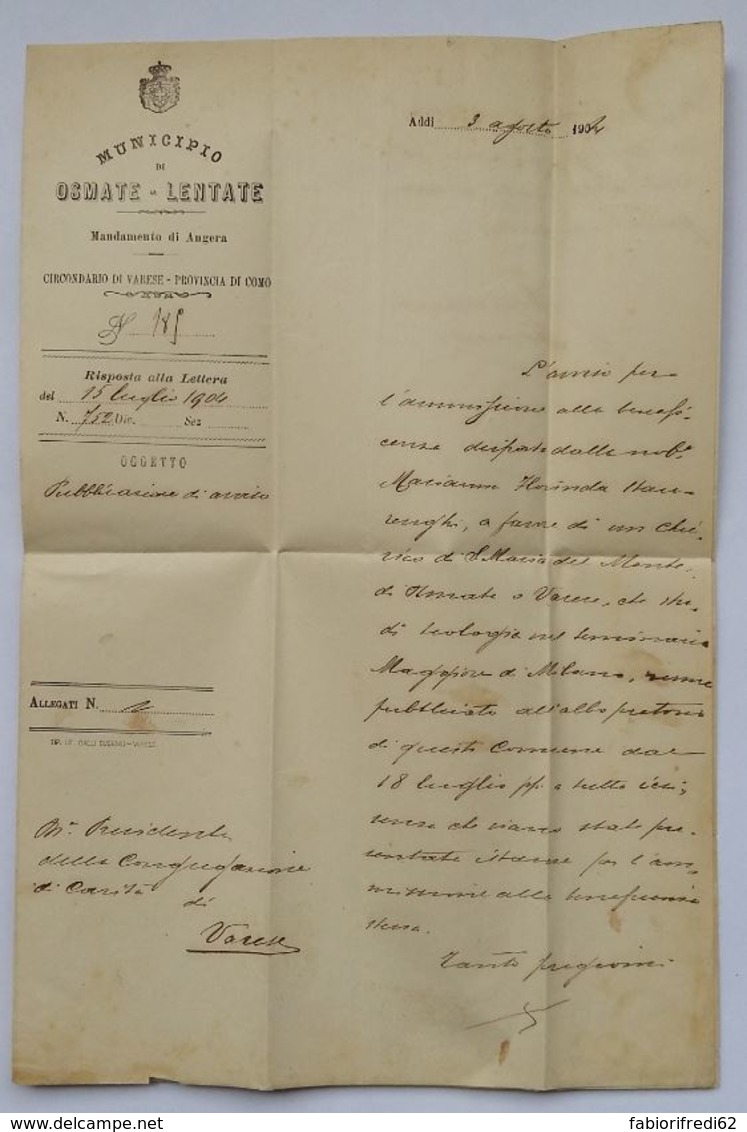 Addì 3 agosto 1904
MUNICIPIO
DI
OSMATE - LENTATE
Mandamento di Angera
CIRCONDARIO DI VARESE - PROVINCIA DI COMO
N 185
Risposta alla Lettera
del 15 luglio 1904
N. 752 Div. Sez
OGGETTO
Pubblicazione di avviso
ALLEGATI N. 1
della Congregazione
di Carità
di
Varese
L'avviso per
l'ammissione alla benefi-
cenza disposta dalla nob.
Marianna Florinda
renghi, a favore di un chie-
rico di S. Maria del Monte,
di Osmate o Varese, che stu-
di teologia nel seminario
Maggiore di Milano, venne
pubblicato all'albo pretorio
di questo Comune dal
18 luglio pp. a tutto ieri,
senza che siano state pre-
sentate istanze per l'am-
missione alla beneficenza
stessa.
Tanto pregiomi
fabiorifredi62